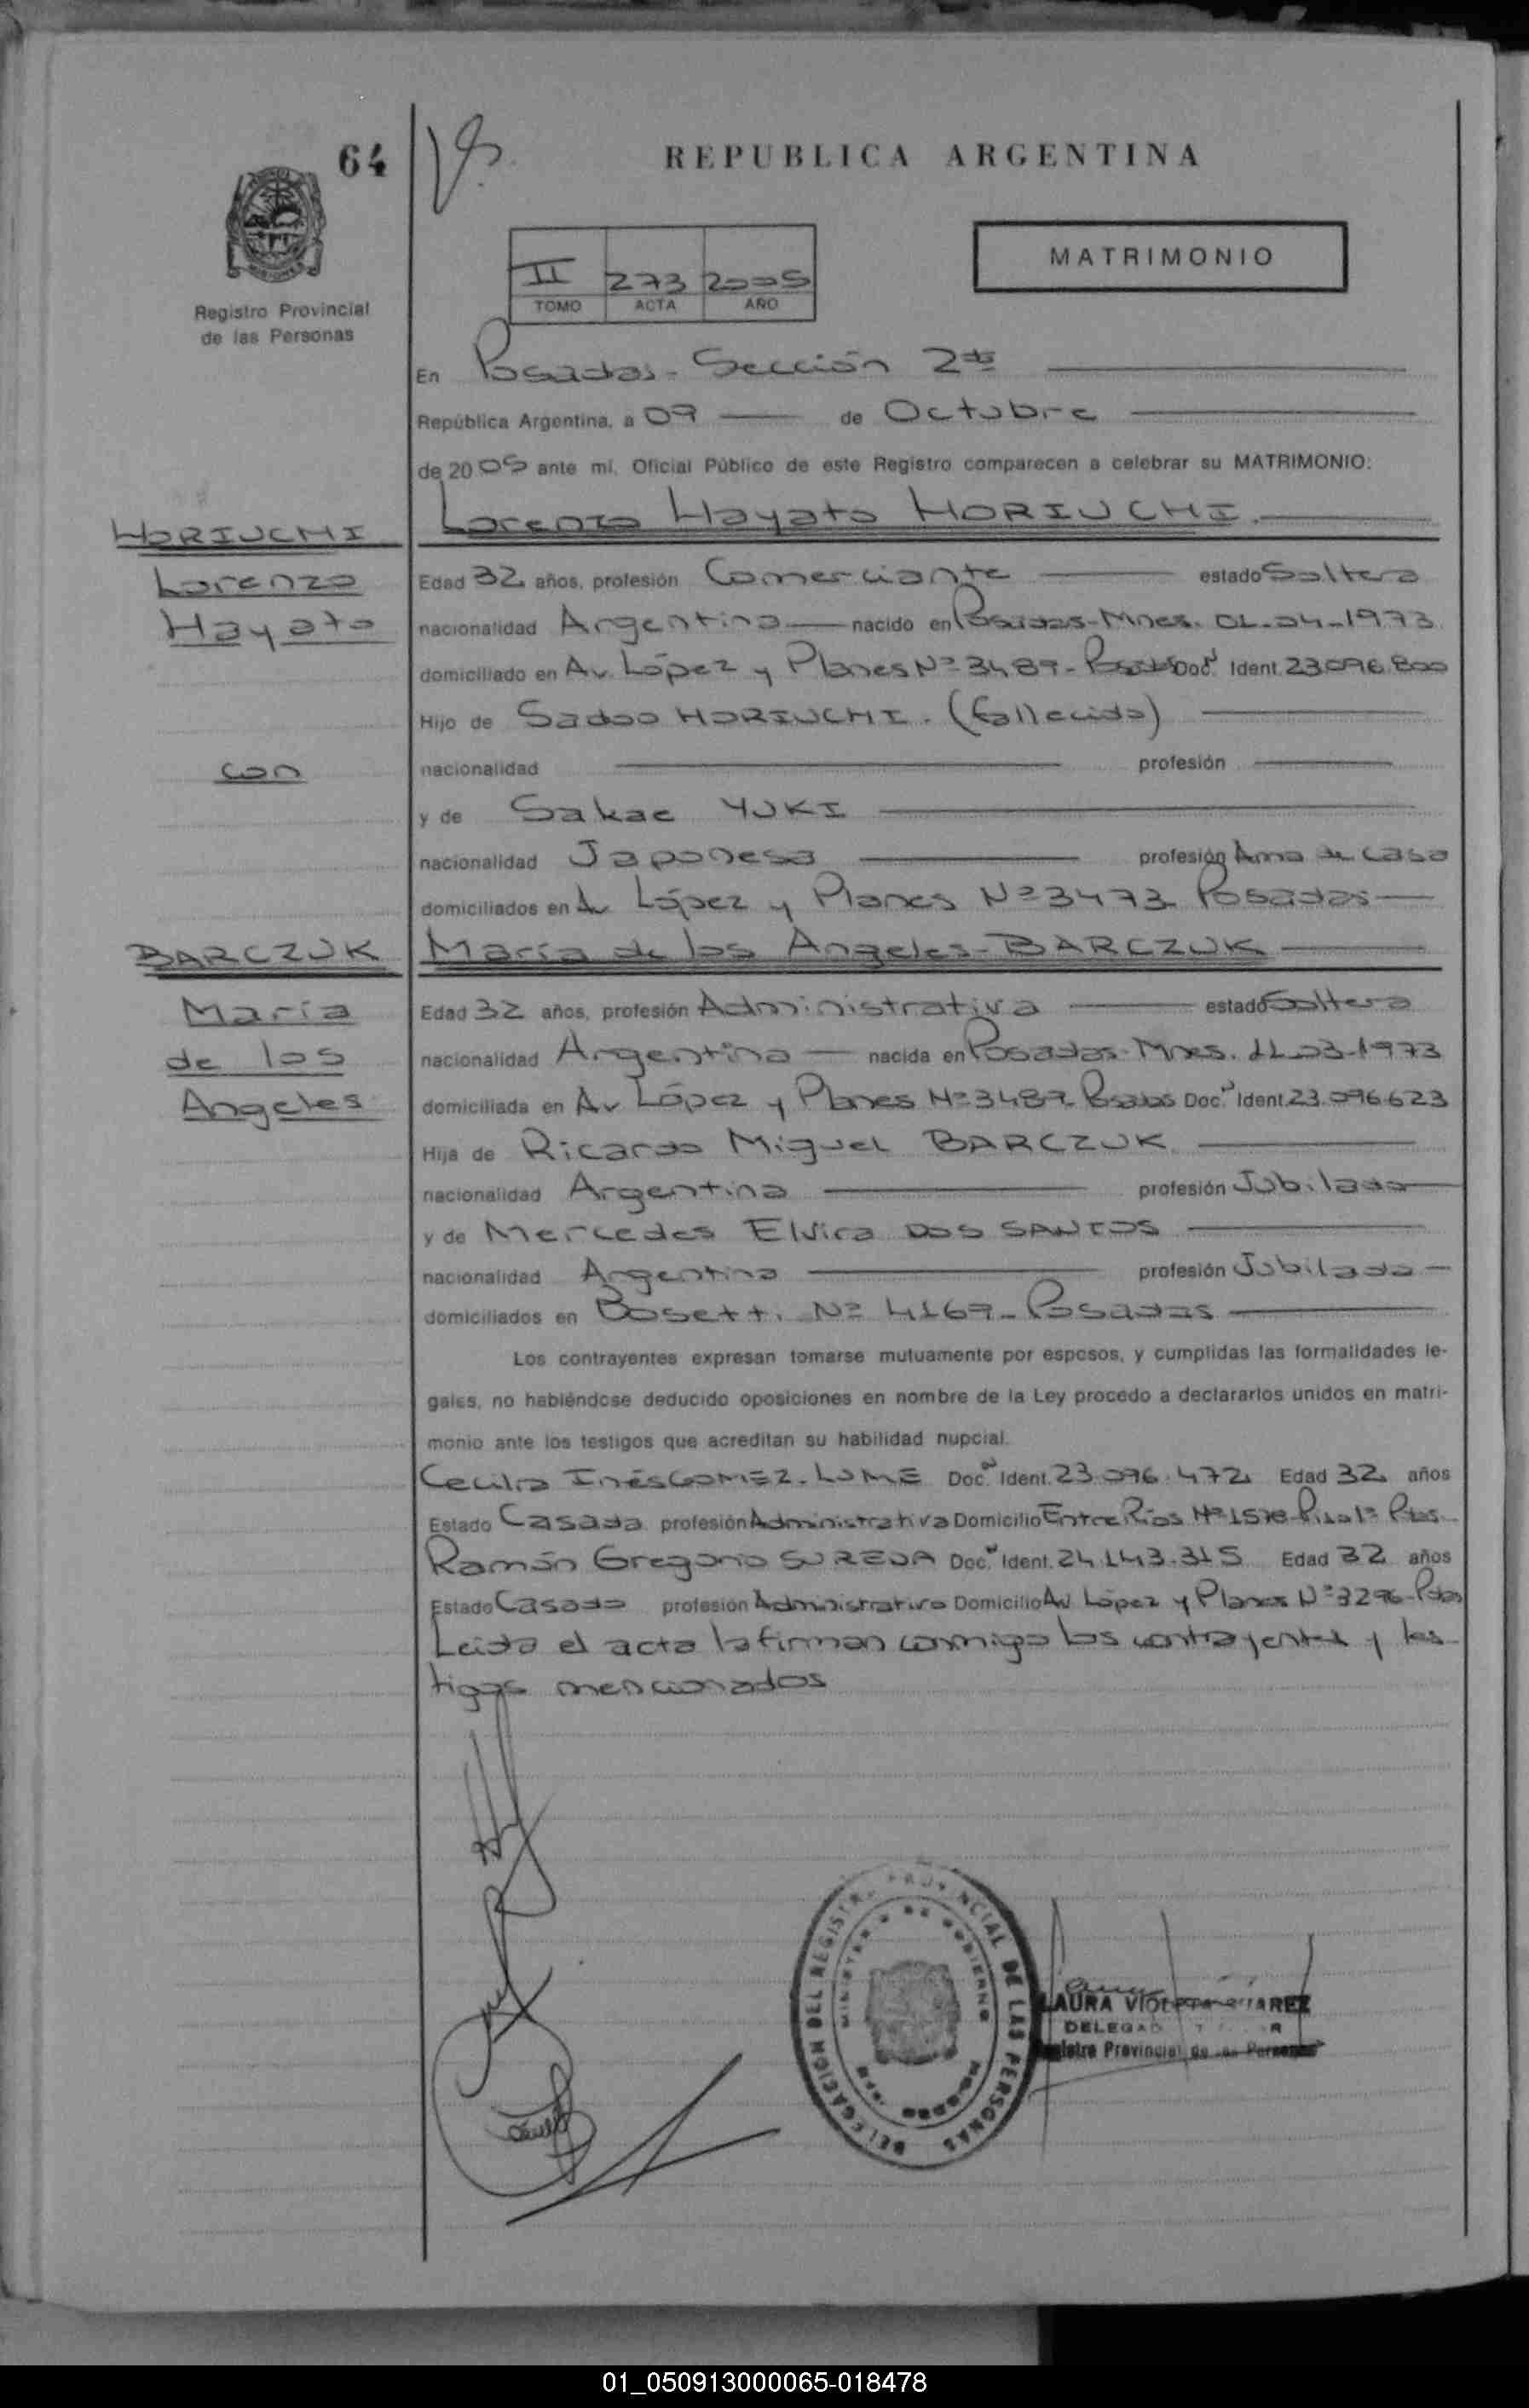 64
REPUBLICA ARGENTINA
MATRIMONIO
II 273 2005
TOMO ACTA AÑO
Registro Provincial
de las Personas
En Posadas - Sección 2da
República Argentina, a 09 de Octubre
de 2005 ante mí, Oficial Público de este Registro comparecen a celebrar su MATRIMONIO:
HORIUCHI
Lorenzo
Hayato
con
Lorenzo Hayato HORIUCHI.
Edad 32 años, profesión Comerciante estado Soltero
nacionalidad Argentina nacido en Posadas-Mnes. 01-04-1973
domiciliado en Av. López y Planes Nº 3489- Posadas Doc. Ident. 23.096.800
Hijo de Sadao HORIUCHI. (fallecido)
nacionalidad profesión
y de Sakae YUKI
nacionalidad Japonesa profesión Ama de casa
domiciliados en Av López y Planes Nº 3473 Posadas
BARCZUK
María
de los
Angeles
María de los Angeles - BARCZUK
Edad 32 años, profesión Administrativa estado Soltera
nacionalidad Argentina nacida en Posadas-Mnes. 11-03-1973
domiciliada en Av López y Planes Nº 3489- Posadas Doc. Ident. 23.096.623
Hija de Ricardo Miguel BARCZUK.
nacionalidad Argentina profesión Jubilado
y de Mercedes Elvira DOS SANTOS
nacionalidad Argentina profesión Jubilada
domiciliados en Bosetti Nº 4169- Posadas
Los contrayentes expresan tomarse mutuamente por esposos, y cumplidas las formalidades le-
gales, no habiéndose deducido oposiciones en nombre de la Ley procedo a declararlos unidos en matri-
monio ante los testigos que acreditan su habilidad nupcial.
Cecilia Inés GOMEZ - LUME Doc. Ident. 23.096.472 Edad 32 años
Estado Casada profesión Administrativa Domicilio Entre Ríos Nº 1578-Piso 1º Pdas.
Ramón Gregorio SUREDA Doc. Ident. 24.143.315 Edad 32 años
Estado Casado profesión Administrativo Domicilio Av López y Planes Nº 3296-Pdas
Leida el acta la firman conmigo los contrayentes y tes-
tigos mencionados
DELEGACION DEL REGISTRO PROVINCIAL DE LAS PERSONAS
MINISTERIO DE GOBIERNO
LAURA
DELEGAD
Registro Provincial de las Personas
01_050913000065-018478